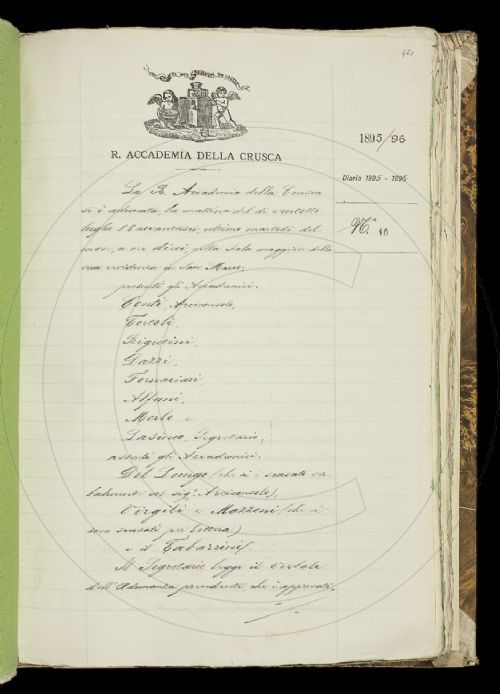 961
R. ACCADEMIA DELLA CRUSCA
1895/96
Diario 1895 - 1896
N.° 10
La R. Accademia della Crusca
si è adunata, la mattina del dì ventotto
luglio 1896, ultimo martedì del
mese, a ore dieci, nella Sala maggiore della
sua residenza in San Marco:
presenti gli Accademici:
Conti, Arciconsolo,
Tortoli,
Rigutini,
Dazzi,
Fornaciari,
Alfani,
Merlo e
Lasinio, Segretario;
assenti gli Accademici:
Del Lungo (che si è scusato ver-
balmente col sig.r Arciconsolo),
Virgili e Mazzoni (che si
sono scusati per lettera)
e il Tabarrini.
Il Segretario legge il verbale
dell'Adunanza precedente, che è approvato.